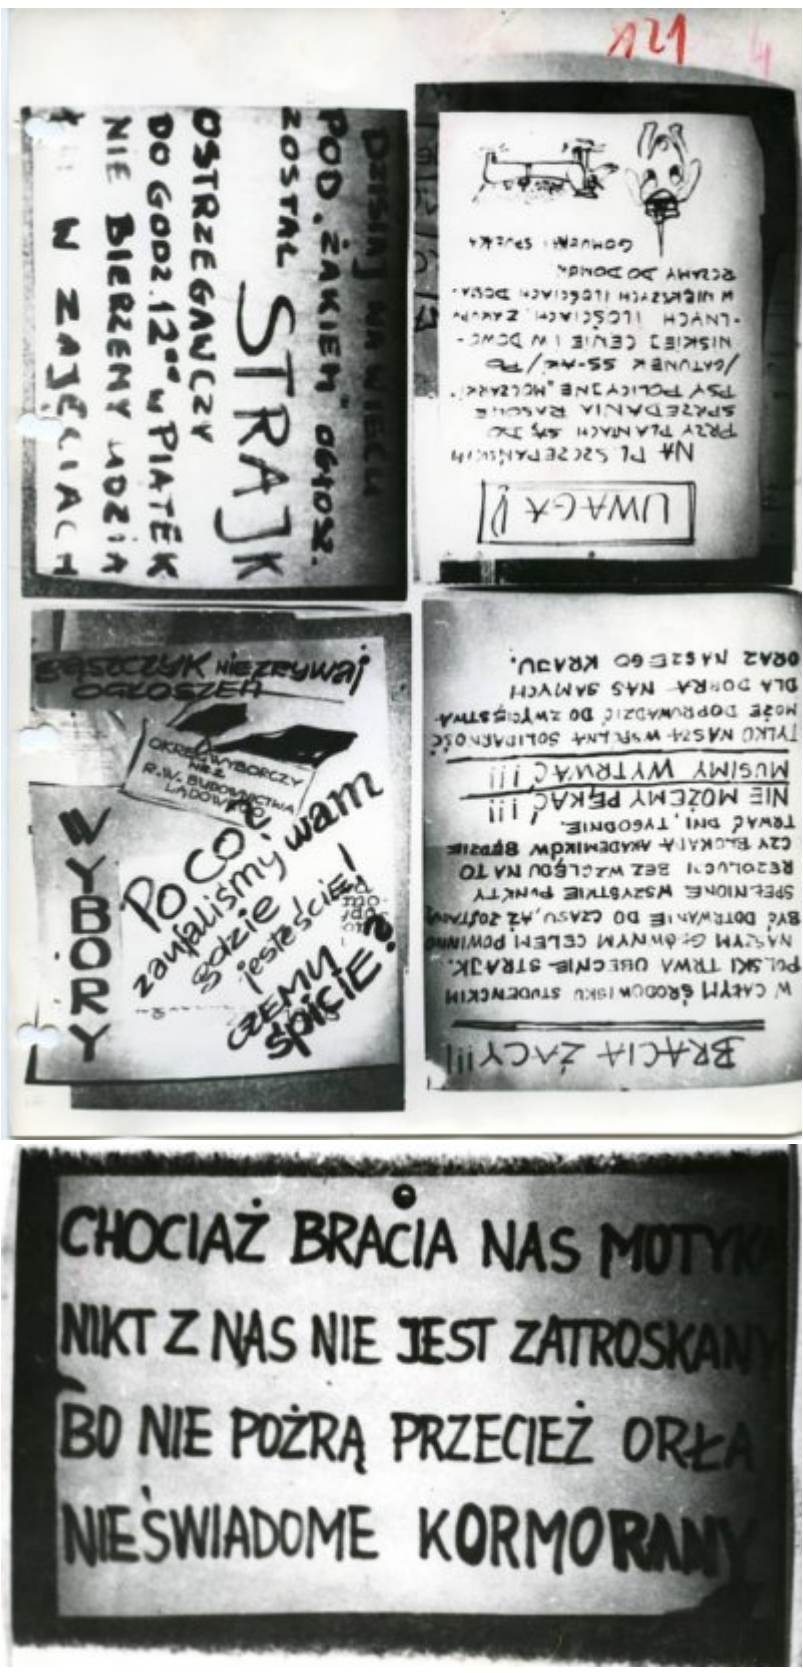 121 4
DZISIAJ NA WIECU
POD "ŻAKIEM" OGŁOSZ.
ZOSTAŁ STRAJK
OSTRZEGAWCZY
DO GODZ. 12°° W PIĄTEK
NIE BIERZEMY UDZIA
W ZAJĘCIACH
UWAGA!
NA PL SZCZEPAŃSKIM
PRZY PLANTACH SĄ DO
SPRZEDANIA RASOWE
PSY POLICYJNE "MOCZARKI"
/GATUNEK SS-AK/PO
NISKIEJ CENIE I W DOWO-
-LNYCH ILOŚCIACH. ZAKUP
W WIĘKSZYCH ILOŚCIACH DOSA-
RCZAMY DO DOMU.
GOMUŁKI SPÓŁKA
BĘSZCZYK NIE ZRYWAJ
OGŁOSZEŃ
OKRĘG WYBORCZY
NR 2
R.W. BUDOWNICTWA
LĄDOWEGO
WYBORY
PO CO
zaufaliśmy wam
gdzie
jesteście!
CZEMU
śpicie?
BRACIA ŻACY!!!
W CAŁYM ŚRODOWISKU STUDENCKIM
POLSKI TRWA OBECNIE STRAJK.
NASZYM GŁÓWNYM CELEM POWINNO
BYĆ DOTRWANIE DO CZASU, AŻ ZOSTANĄ
SPEŁNIONE WSZYSTKIE PUNKTY
REZOLUCJI BEZ WZGLĘDU NA TO
CZY BLOKADA AKADEMIKÓW BĘDZIE
TRWAĆ DNI, TYGODNIE.
NIE MOŻEMY PĘKAĆ!!!
MUSIMY WYTRWAĆ!!!
TYLKO NASZA WSPÓLNA SOLIDARNOŚĆ
MOŻE DOPROWADZIĆ DO ZWYCIĘSTWA
DLA DOBRA NAS SAMYCH
ORAZ NASZEGO KRAJU.
CHOCIAŻ BRACIA NAS MOTYKA
NIKT Z NAS NIE JEST ZATROSKANY
BO NIE POŻRĄ PRZECIEŻ ORŁA
NIEŚWIADOME KORMORANY